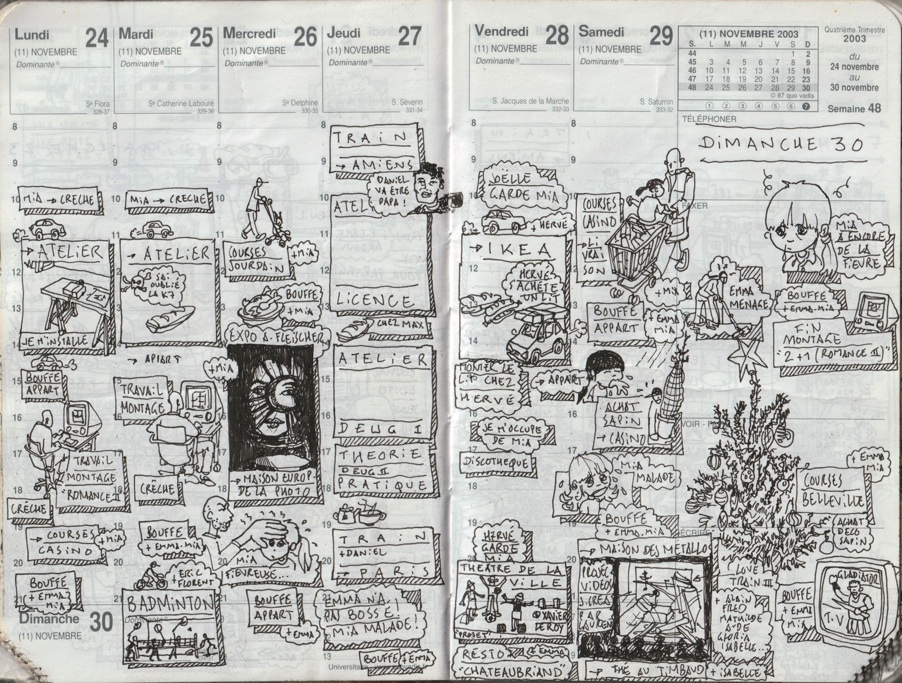 Lundi 24
(11) NOVEMBRE
Dominante
Se Flora
328-37
8
9
10
MIA → CRECHE
11
→ ATELIER
12
13
14
JE M'INSTALLE
15
BOUFFE
APPART
16
17
TRAVAIL
MONTAGE
"ROMANCE II"
CRÈCHE
→ COURSES
CASINO
+ MIA
BOUFFE
+ EMMA
MIA
Dimanche 30
(11) NOVEMBRE
Mardi 25
(11) NOVEMBRE
Dominante
Se Catherine Labouré
329-36
8
9
10
MIA → CRECHE
11
→ ATELIER
OUBLIÉ
LA K7
→ APPART
15
TRAVAIL
MONTAGE
CRÈCHE
BOUFFE
+ EMMA-MIA
ERIC
+ FLORENT
BADMINTON
Mercredi 26
(11) NOVEMBRE
Dominante
Se Delphine
330-35
8
9
10
11
COURSES
JOURDAIN
+ MIA
BOUFFE
+ MIA
EXPO A. FLEISCHER
+ MIA
→ MAISON EUROP.
DE LA PHOTO
MIA
FIEVREUSE...
BOUFFE
APPART
+ EMMA
Jeudi 27
(11) NOVEMBRE
Dominante
S. Séverin
331-34
8
TRAIN
→ AMIENS
DANIEL
VA ÊTRE
PAPA !
LICENCE
CHEZ MAX
ATELIER
DEUG I
THEORIE
DEUG II
PRATIQUE
TRAIN
+ DANIEL
→ PARIS
EMMA N'A
PAS BOSSÉ
MIA MALADE !
BOUFFE + EMMA
Vendredi 28
(11) NOVEMBRE
Dominante
S. Jacques de la Marche
332-33
8
9
GARDE MIA
10
+ HERVÉ
→ IKEA
12
HERVÉ
S'ACHÈTE
UN LIT
13
14
CHEZ
HERVÉ
→ APPART
JE M'OCCUPE
DE MIA
DISCOTHEQUE
HERVÉ
GARDE
MIA
THEATRE DE LA
VILLE
XAVIER
LE ROY
"PROJET"
RESTO
+ EMMA
"CHATEAUBRIAND"
Samedi 29
(11) NOVEMBRE
Dominante
S. Saturnin
333-32
8
9
COURSES
CASINO
→ LI
VRAI
SON
+ MIA
BOUFFE
APPART
EMMA
MIA
EMMA
MÉNAGE
ACHAT
SAPIN
→ CASINO
MIA
MALADE
BOUFFE
+ EMMA-MIA
→ MAISON DES METALLOS
→ THÉ AU TIMBAUD
+ ISABELLE
(11) NOVEMBRE 2003
S. L M M J V S D
44 1 2
45 3 4 5 6 7 8 9
46 10 11 12 13 14 15 16
47 17 18 19 20 21 22 23
48 24 25 26 27 28 29 30
© 87 quo vadis
1 2 3 4 5 6 7
Quatrième Trimestre
2003
du
24 novembre
au
30 novembre
Semaine 48
TÉLÉPHONER
DIMANCHE 30
MIA
A ENCORE
DE LA
FIEVRE
BOUFFE
+ EMMA-MIA
FIN
MONTAGE
"2+1 (ROMANCE II)"
+ EMMA
MIA
COURSES
BELLEVILLE
ACHAT
DECO
SAPIN
LOVE
TRAIN III
ALAIN
FRED
MATHILDE
GLORIA
ISABELLE...
BOUFFE
+ EMMA
MIA
GLADIATOR
T.V